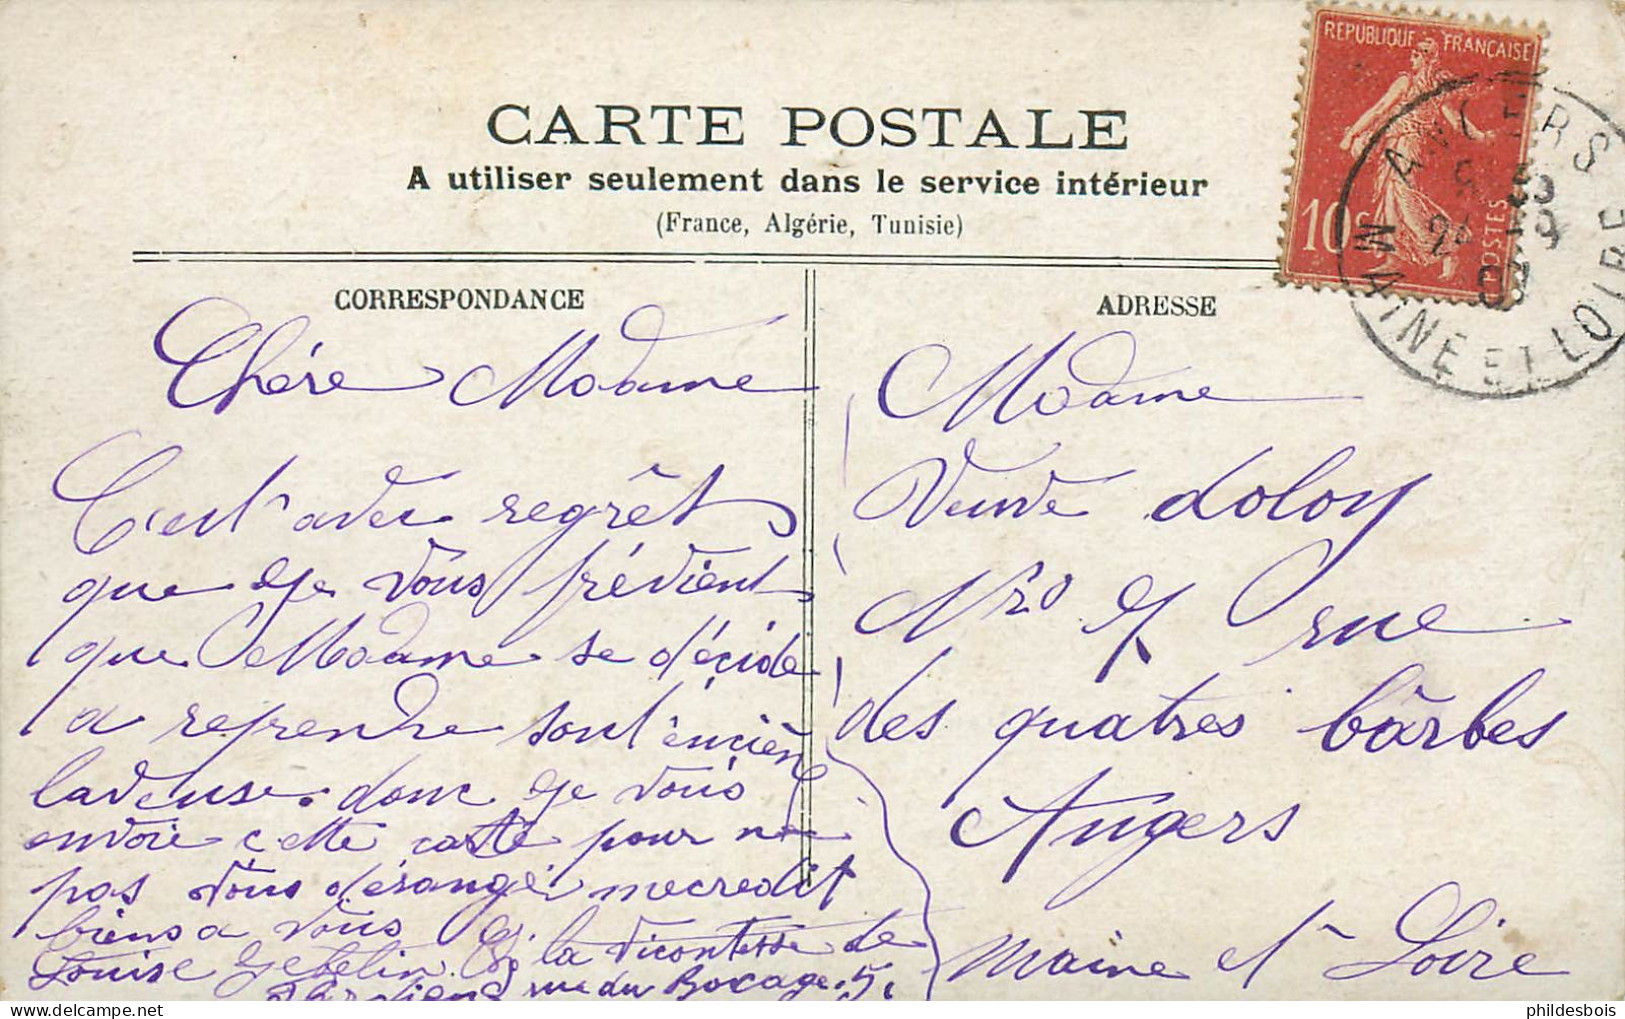 CARTE POSTALE
A utiliser seulement dans le service intérieur
(France, Algérie, Tunisie)
CORRESPONDANCE
Chére Madame
C'est avec regrêt
que je vous prévient
que Madame se décide
a reprendre sont enciène
laveuse. donc je vous
envoie cette carte pour ne
pas vous désangé mecredit
biens a vous
Louise Gebelin la Vicontesse de
rue du Bocage. 5.
ADRESSE
Madame
Veuve Loloy
Nro 9 rue
des quatres bârbes
Angers
Maine et Loire
REPUBLIQUE FRANÇAISE
10 c
POSTES
ANGERS
MAINE ET LOIRE
delcampe.net
phildesbois